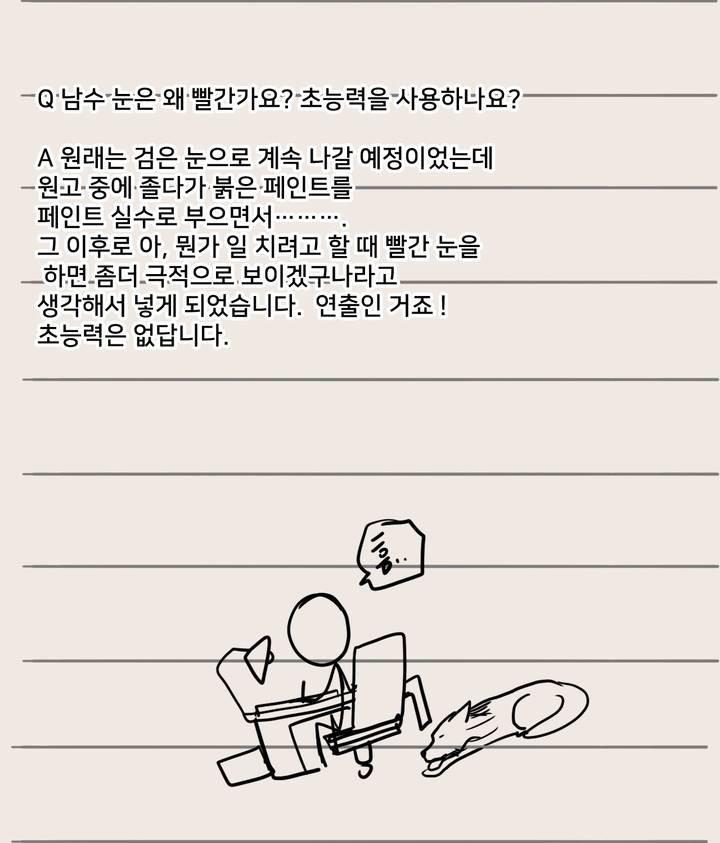 Q 남수 눈은 왜 빨간가요? 초능력을 사용하나요?
A 원래는 검은 눈으로 계속 나갈 예정이었는데
원고 중에 졸다가 붉은 페인트를
페인트 실수로 부으면서⋯⋯⋯.
그 이후로 아, 뭔가 일 치려고 할 때 빨간 눈을
하면 좀더 극적으로 보이겠구나라고
생각해서 넣게 되었습니다. 연출인 거죠 !
초능력은 없답니다.
흠..